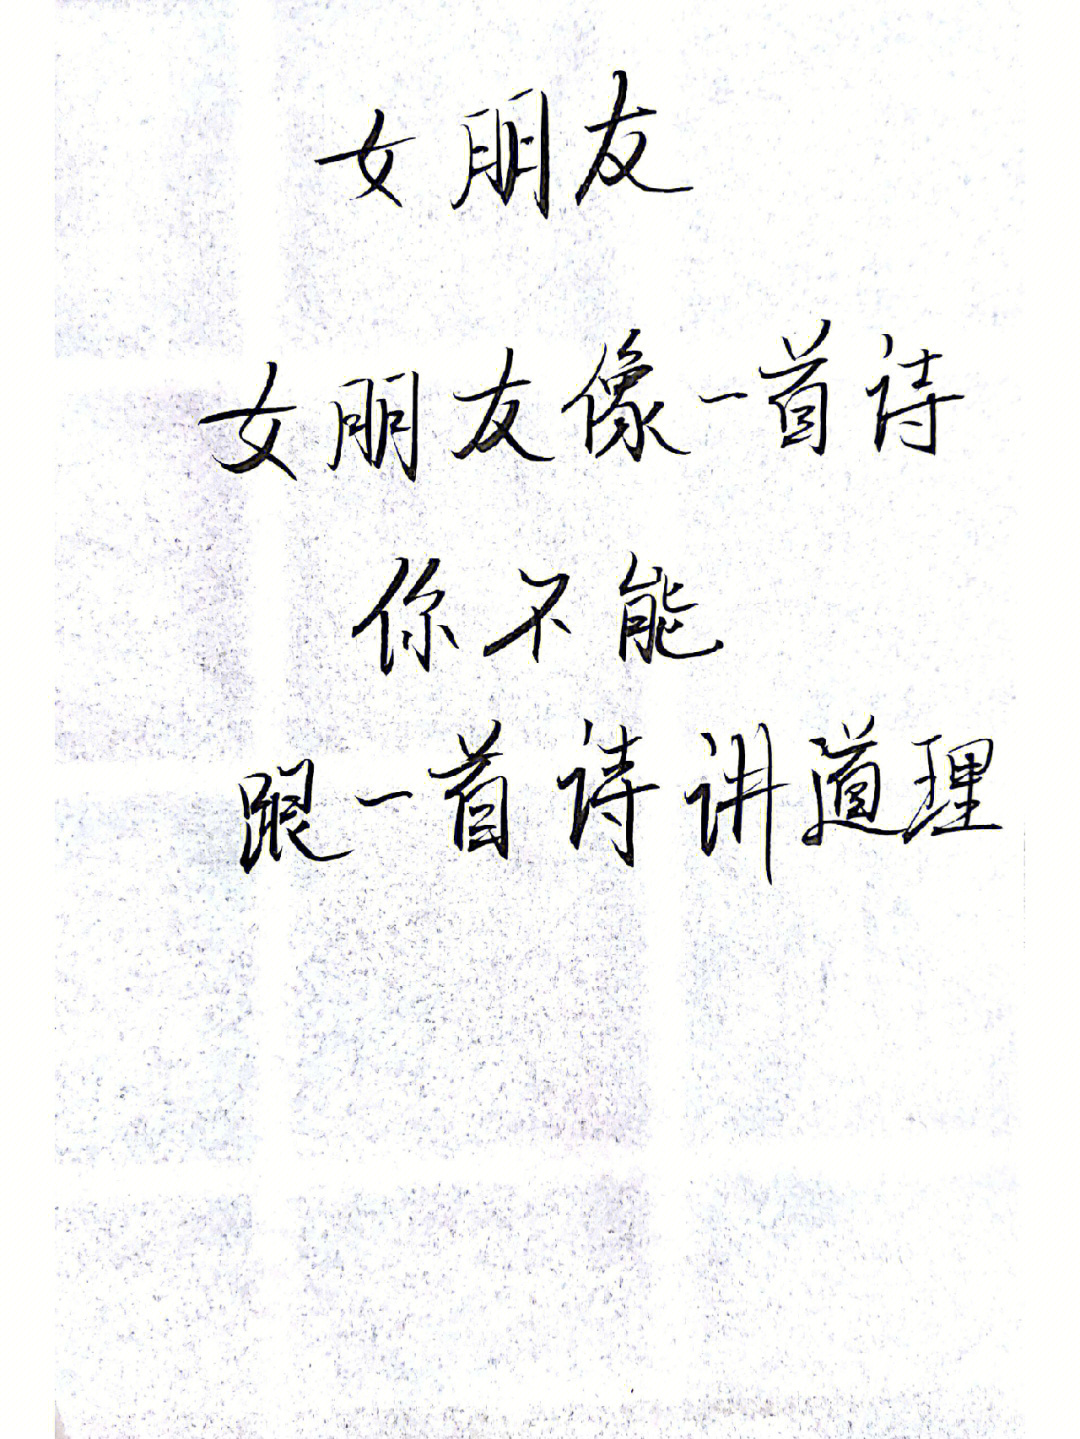 女朋友
女朋友像一首诗
你不能
跟一首诗讲道理